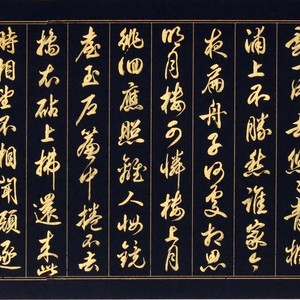 去悠悠青楓
浦上不勝愁誰家今
夜扁舟子何處相思
明月樓可憐樓上月
徘徊應照離人妝鏡
臺玉戶簾中捲不去
擣衣砧上拂還來此
時相望不相聞願逐